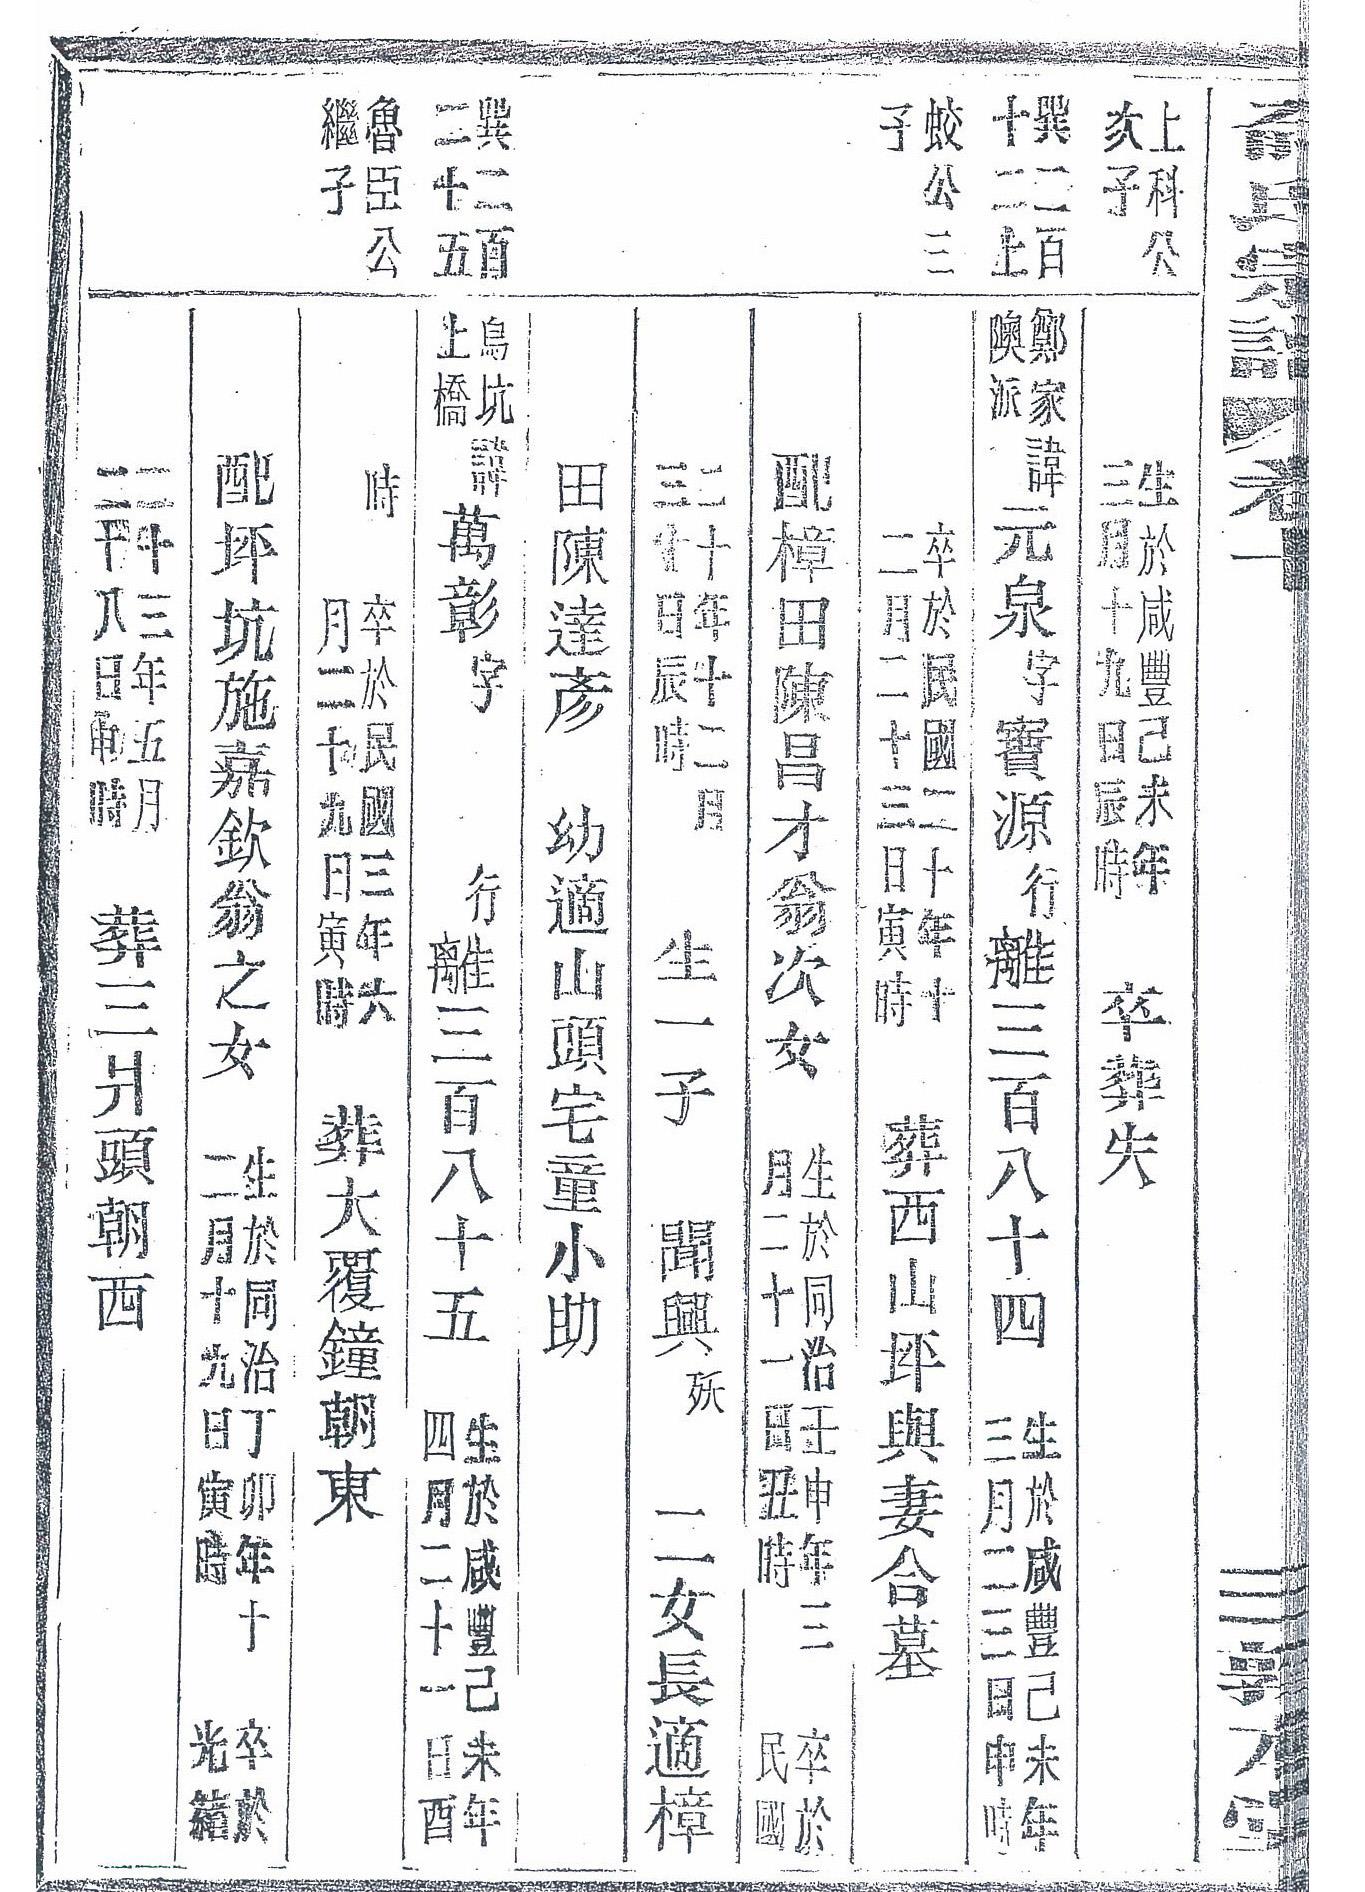 氏宗譜 卷一
上科公
次子
生於咸豐己未年
三月十九日辰時
卒葬失
巽二百
十二上
鄭家
隩派
諱元泉字寶源行離三百八十四
生於咸豐己未年
三月二三日申時
蛟公三
子
卒於民國二十年十
二月二十三日寅時
葬西山坪與妻合墓
配樟田陳昌才翁次女
生於同治壬申年三
月二十一日丑時
卒於
民國
二十年十二月
三十日辰時
生一子 聞興 殀 二女長適樟
田陳達彥 幼適山頭宅童小助
巽二百
二十五
烏坑
上橋
諱萬彰字 行離三百八十五
生於咸豐己未年
四月二十一日酉
魯臣公
繼子
時
卒於民國三年六
月二十九日寅時
葬大覆鐘朝東
配坪坑施嘉欽翁之女
生於同治丁卯年十
二月十九日寅時
卒於
光緒
二十三年五月
二十八日申時
葬三爿頭朝西